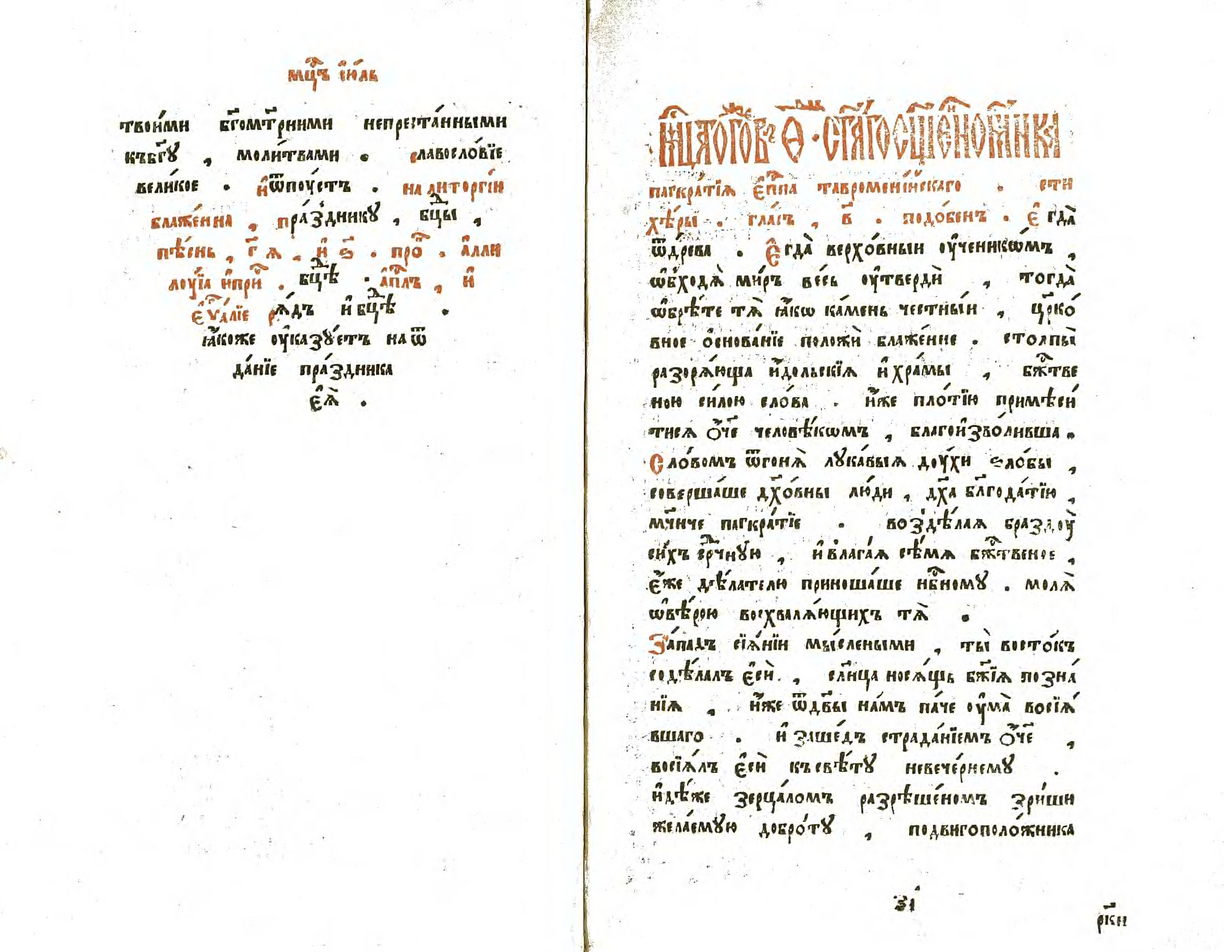 мцⷭ҇ъ і҆ю́ль
твои́ми бг҃ома́трними непреста́нными
къбг҃ꙋ , моли́твами . славосло́вїе
великое . и҆ѿпꙋ́стъ . на литꙋргі́и
блаже́нна , пра́зднику , бцⷣы ,
пѣ́снь , г҃ ꙗ , и҆ ѕ҃ . про . а҆лли
лоуїа и҆при . бцⷣѣ . а҆пⷭ҇лъ , и҆
є҆ѵⷢ҇алїе рѧ́дъ и҆ бцⷣѣ .
ꙗ҆́коже оу҆ка́зꙋетъ на ѿ
да́нїе пра́здника
є҆ѧ̀ .
мцⷭ҇а того́в ѳ҃ · ст҃а́го сщ҃енномꙋⷱ҇нка
пагкра́тїѧ є҆пⷭ҇па тавромені́искаго . сти
хѣ́ры . гла́съ , в҃ . подо́бенъ . Є҆гда̀
ѿдре́ва . Є҆гда̀ верхо́вныи оу҆ченикѡ́мъ ,
ѡ҆бходѧ̀ ми́ръ ве́сь оу҆твердѝ , тогда̀
ѡ҆брѣ́те тѧ̀ ꙗ҆́кѡ ка́мень честны́и , црⷪ҇ко́
вное ѻ҆снова́нїе положѝ блаже́нне . столпы̀
разорѧ́юща и҆́дольскїѧ и҆ хра́мы , бж҃тве
ною си́лою сло́ва . и҆́же пло́тїю примѣси́
тисѧ ѻ҆́ч҃е человѣ́кѡмъ , благоизво́ливша .
Сло́вомъ ѿгонѧ̀ лꙋка́выѧ дꙋ́хи ѕло́бы ,
соверша́ше дх҃о́вны лю́ди , дх҃а бл҃года́тїю ,
мч҃ниче пагкра́тїе . возⷣѣ́лаѧ бразды̀
си́хъ є҆рⷣчную , и҆ влага́ѧ сѣ́мѧ бж҃твеное ,
є҆́же дѣ́лателю приноша́ше нбⷭ҇ному . молѧ̀
ѡ҆вѣ́рою восхвалѧ́ющихъ тѧ̀ .
За́падъ сїѧ́нїи мы́слеными , ты̀ восто́къ
содѣ́лалъ є҆сѝ , сл҃нца носѧ́щь бж҃їѧ позна́
нїѧ , и҆́же ѿдв҃ы на́мъ па́че оу҆ма̀ восїѧ́
вшаго . и҆ заше́дъ страда́нїемъ ѻ҆́ч҃е ,
восїѧ́лъ є҆сѝ къ свѣ́тꙋ невече́рнемꙋ .
и҆дѣ́же зерца́ломъ разрѣше́номъ зри́ши
жела́емꙋю добро́тꙋ , подвигополо́жника
з҃і
рк҃и